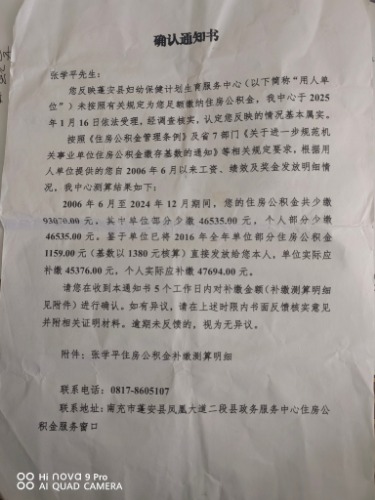 确认通知书
张学平先生：
您反映蓬安县妇幼保健计划生育服务中心（以下简称“用人单
位”）未按照有关规定为您足额缴纳住房公积金，我中心于 2025
年 1 月 16 日依法受理，经调查核实，认定您反映的情况基本属实。
按照《住房公积金管理条例》及省 7 部门《关于进一步规范机
关事业单位住房公积金缴存基数的通知》等相关规定要求，根据用
人单位提供的您自 2006 年 6 月以来工资、绩效及奖金发放明细情
况。我中心测算结果如下：
2006 年 6 月至 2024 年 12 月期间，您的住房公积金共少缴
93070.00 元，其中单位部分少缴 46535.00 元，个人部分少缴
46535.00 元。鉴于单位已将 2016 年全年单位部分住房公积金
1159.00 元（基数以 1380 元核算）直接发放给您本人，单位实际应
补缴 45376.00 元，个人实际应补缴 47694.00 元。
请您在收到本通知书 5 个工作日内对补缴金额（补缴测算明细
见附件）进行确认。如有异议，请在上述时限内书面反馈核实意见
并附相关证明材料。逾期未反馈的，视为无异议。
附件：张学平住房公积金补缴测算明细
联系电话：0817-8605107
联系地址：南充市蓬安县凤凰大道二段县政务服务中心住房公
积金服务窗口
Hi nova 9 Pro
AI QUAD CAMERA